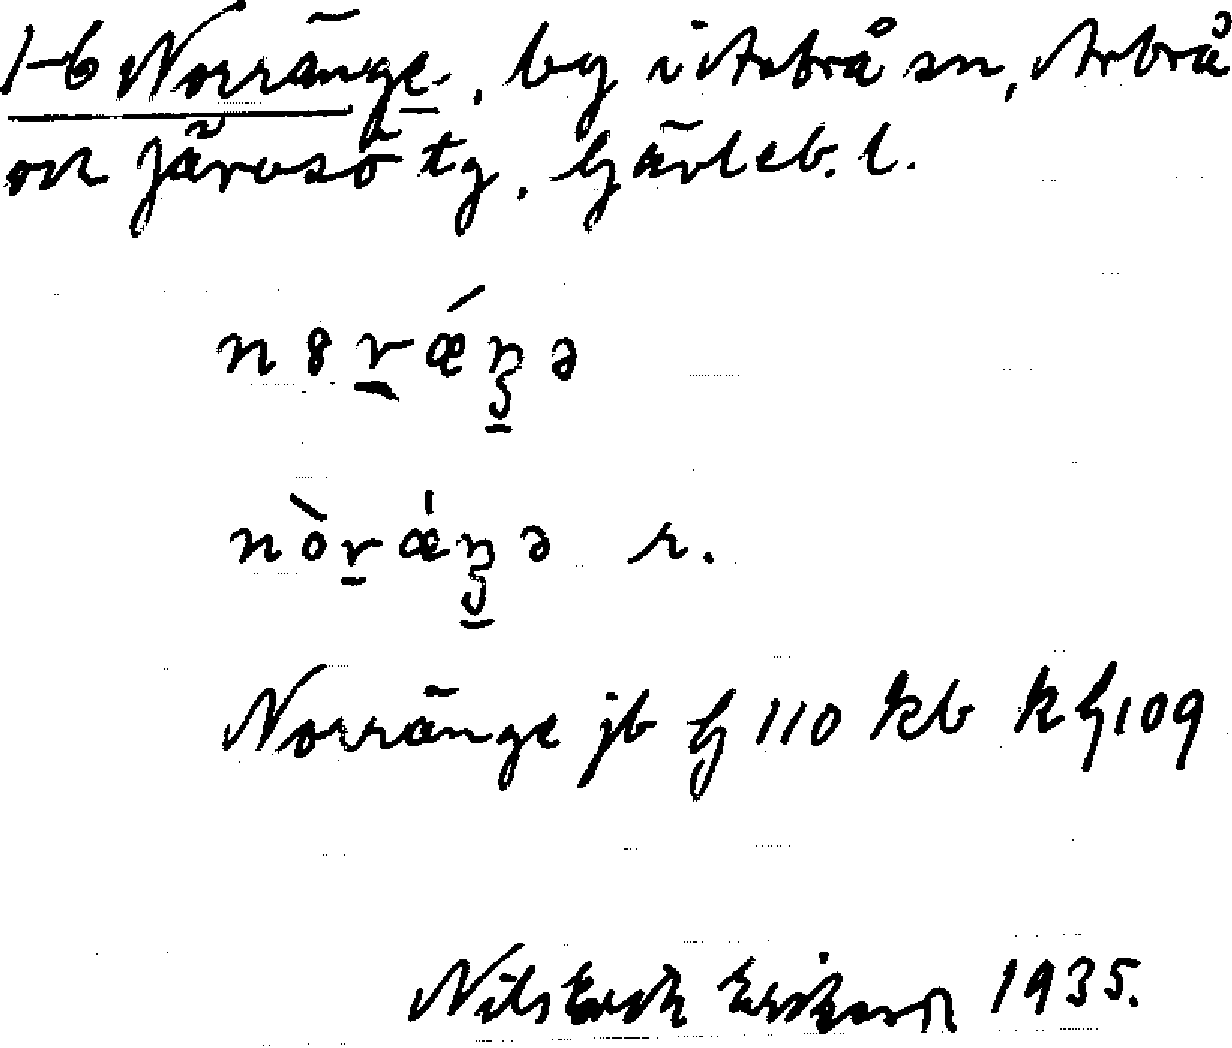 1-6 Norränge, by i Arbrå sn, Arbrå
och Järvsö tg, Gävleb. l.
n8ræ´nʒə
nòrænʒə r.
Norränge jb § 110 kb k § 109
Nils Erik Eriksson 1935.